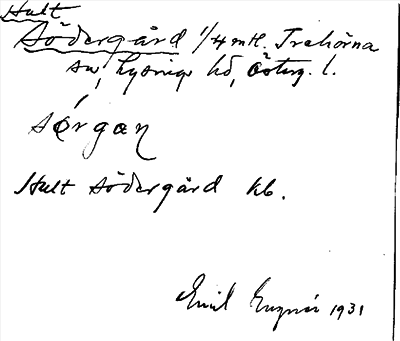 Hult
Södergård 1/4 mtl. Trehörna
sn, Lysings hd, Österg. l.
sǿrgaɳ
Hult Södergård kb.
Emil 1931